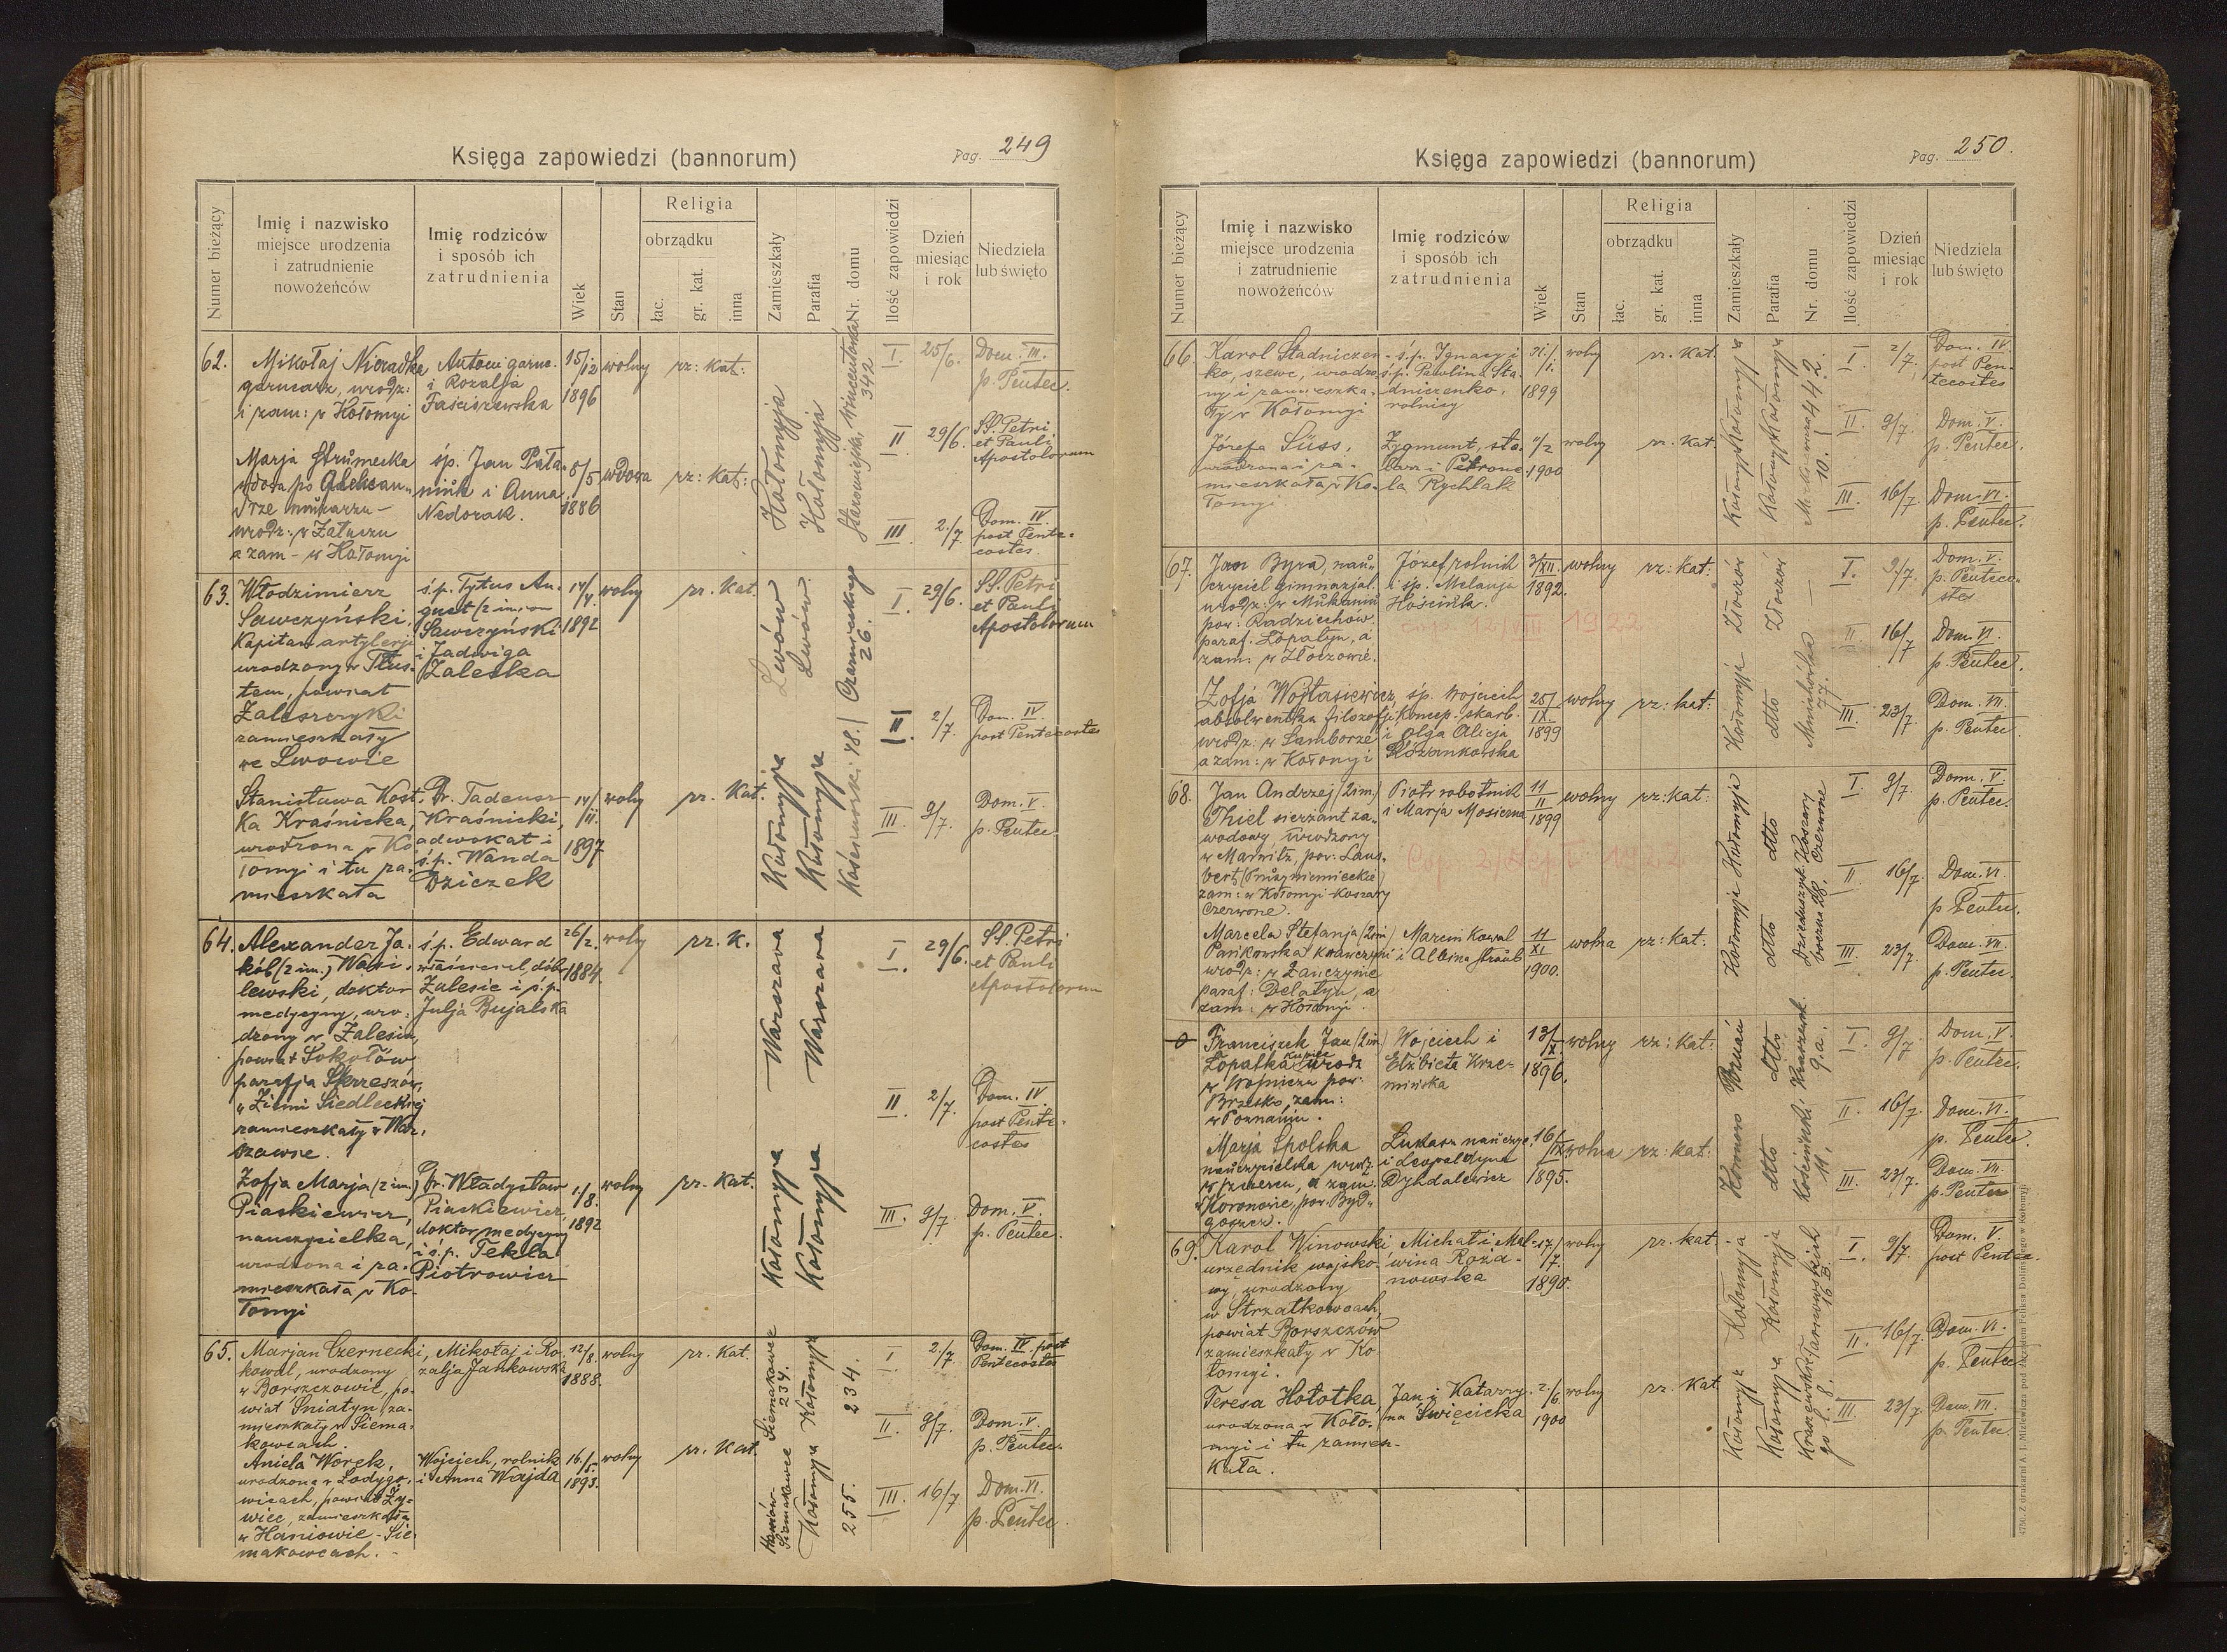 Księga zapowiedzi (bannorum)
Pag. 249
Numer bieżący
Imię i nazwisko
miejsce urodzenia
i zatrudnienie
nowożeńców
Imię rodziców
i sposób ich
zatrudnienia
Wiek
Stan
Religia
obrządku
łac.
gr. kat.
inna
Zamieszkały
Parafia
Nr. domu
Ilość zapowiedzi
Dzień
miesiąc
i rok
Niedziela
lub święto
62.
Mikołaj Nieradka
garncarz, urodz:
i zam: w Kołomyi
Antoni garnc.
i Rozalja
Faściszewska
15/12
1896
wolny
rz: kat:
Marja Strumecka
wdowa po Aleksan-
drze
urodz: w Załuczu
a zam- w Kołomyi
śp. Jan Pała-
niuk i Anna
Nedorak.
8/5
1886
wdowa
rz: kat:
Kołomyja
Kołomyja
342
I. 25/6. Dom. III.
p. Pentec.
II 29/6. SS. Petri
et Pauli
Apostolorum
III 2./7. Dom. IV.
post Pente-
costes.
63.
Włodzimierz
Sawczyński,
kapitan artylerji
urodzony w Tłus-
tem, powiat
Zaleszczyki
zamieszkały
we Lwowie
ś.p. Tytus Au-
gust (2 imion
Sawczyński
i Jadwiga
Zaleska
14/
1892
wolny
rz. kat.
Stanisława Kost-
ka Kraśnicka,
urodzona w Ko-
łomyi i tu za-
mieszkała
Dr. Tadeusz
Kraśnicki,
adwokat i
ś.p. Wanda
Dziczek
14/II.
1897
wolny
rz. kat.
Lwów
Lwów
26.
Kołomyja
Kołomyja
Kościuszki 48.
I. 29/6. SS. Petri
et Pauli
Apostolorum
II. 2/7. Dom. IV
post Pentecostes
III. 9/7. Dom. V.
p. Pentec.
64.
Alexander Ja-
kób (2 im.) Wasi-
lewski, doktor
medycyny, uro-
dzony w Zalesiu,
powiat Sokołów
parafja Skrzeszów,
w Ziemi Siedleckiej
zamieszkały w War-
szawie.
ś.p. Edward
właściciel dóbr
Zalesie i ś.p.
Julja Bujalska
26/2.
1884.
wolny
rz. k.
Zofja Marja (2 im.)
Piaskiewicz,
nauczycielka,
urodzona i za-
mieszkała w Ko-
łomyi
Dr. Władysław
Piaskiewicz
doktor medycyny
i ś.p. Tekla
Piotrowicz
1/8.
1892
wolny
rz. kat.
Warszawa
Warszawa
Kołomyja
Kołomyja
I. 29/6. SS. Petri
et Pauli
Apostolorum
II. 2/7. Dom. IV.
post Pente-
costes
III. 9/7. Dom. V.
p. Pentec.
65.
Marjan Czernecki,
kowal, urodzony
w Borszczowie, po-
wiat Śniatyn, za-
mieszkały w Siema-
kowcach.
Mikołaj i Ro-
zalja Jankowska
12/8.
1888.
wolny
rz. kat.
Aniela Worek,
urodzona w Łodygo-
wicach, powiat Ży-
wiec, zamieszkała
w Haniowie - Sie-
makowcach.
Wojciech, rolnik
i Anna Wajda
16/5.
1893.
wolny
rz. kat.
Siemakowce
234.
Kołomyja
234.
Haniów-
Siemakowce
Kołomyja
255.
I. 2/7. Dom. IV. post
Pentecostes
II. 9/7. Dom. V.
p. Pentec.
III. 16/7. Dom. VI.
p. Pentec.
Księga zapowiedzi (bannorum)
Pag. 250.
Numer bieżący
Imię i nazwisko
miejsce urodzenia
i zatrudnienie
nowożeńców
Imię rodziców
i sposób ich
zatrudnienia
Wiek
Stan
Religia
obrządku
łac.
gr. kat.
inna
Zamieszkały
Parafia
Nr. domu
Ilość zapowiedzi
Dzień
miesiąc
i rok
Niedziela
lub święto
66.
Karol Stadniczen-
ko, szewc, urodzo-
ny i zamieszka-
ły w Kołomyi
ś.p. Ignacy i
ś.p. Pawlina Sta-
dniczenko,
rolnicy
31./1.
1899
wolny
rz. kat.
Józefa Süss,
urodzona i za-
mieszkała w Ko-
łomyi.
Zygmunt, sto-
larz i Petrone-
la Rychlak
11/2
1900
wolny
rz. kat
Kołomyja
Kołomyja
442.
Kołomyja
Kołomyja
10.
I 2/7. Dom. IV
post Pen-
tecostes
II. 9/7. Dom. V.
p. Pentec.
III. 16/7. Dom. VI.
p. Pentec.
67.
Jan Byra, nau-
czyciel gimnazjal.
urodz: w Mukaniu
pow: Radziechów
paraf. Łopatyn, a
zam: w Złoczowie.
Józef rolnik
i śp. Melanja
Hościuk.
3/XII.
1892.
wolny
rz: kat.
1922
Zofja Wojtasiewicz,
absolwentka filozofji
urodz: w Samborze
a zam: w Kołomyi
śp. Wojciech
koncep. skarb.
i Olga Alicja
Różankowska
25/IX.
1899
wolny
rz: kat:
Złoczów
Złoczów
—
Kołomyja
dtto
Mnichówka
7.
I. 9/7. Dom. V.
p. Penteco-
stes
II. 16/7. Dom. VI.
p. Pentec.
III. 23/7. Dom. VII.
p. Pentec.
68.
Jan Andrzej (2 im.)
Thiel sierżant za-
wodowy urodzony
w Marwitz, pow. Lans-
berg (Prusy niemieckie)
zam: w Kołomyi Koszary
Czerwone.
Piotr robotnik
i Marja Mosierna
11/II
1899
wolny
rz: kat:
Marcela Stefanja (2 im)
Pańkowska krawczyni
urodz: w Łanczynie
paraf: Delatyn, a
zam: w Kołomyi
Marcin Kowal
i Albina Straub
11/XI
1900.
wolna
rz: kat:
Kołomyja
dtto
Koszary
Czerwone
Kołomyja
dtto
28.
I. 9/7. Dom. V.
p. Pentec.
II. 16/7. Dom. VI.
p. Pentec.
III. 23/7. Dom. VII.
p. Pentec.
0
Franciszek Jan (2 im)
Łopatka kupiec urodz
w Wojniczu pow:
Brzesko, zam:
w Poznaniu.
Wojciech i
Elżbieta Krze-
mińska
13/IX.
1896.
wolny
rz: kat:
Marja Spolska
nauczycielka urodz.
w Szczercu, a zam:
w Koronowie, pow. Byd-
goszcz.
Łukasz nauczyc.
i Leopoldyna
Dyhdalewicz
16/IX.
1895.
wolna
rz: kat:
Poznań
dtto
9.a.
Koronowo
dtto
Kościuszki
11.
I. 9/7 Dom. V.
p. Pentec.
II. 16/7. Dom. VI.
p. Pentec.
III. 23/7. Dom. VII.
p. Pentec
69.
Karol Winowski
urzędnik wojsko-
wy, urodzony
w Strzałkowcach,
powiat Borszczów
zamieszkały w Ko-
łomyi.
Michał i Mal-
wina Roża-
nowska
17/7.
1890.
wolny
rz. kat.
Teresa Hołotka,
urodzona w Koło-
myi i tu zamiesz-
kała.
Jan i Katarzy-
na Święcicka
2./6.
1900
wolny
rz. kat
Kołomyja
Kołomyja
Tarnowskich
16 B.
Kołomyja
Kołomyja
Kraszewskie-
go l. 8.
I. 9/7. Dom. V.
post Pentec.
II. 16/7. Dom. VI.
p. Pentec
III. 23/7. Dom. VII.
p. Pentec.
4750. Z drukarni A. J. Miziewicza pod zarządem Feliksa Dolińskiego w Kołomyji